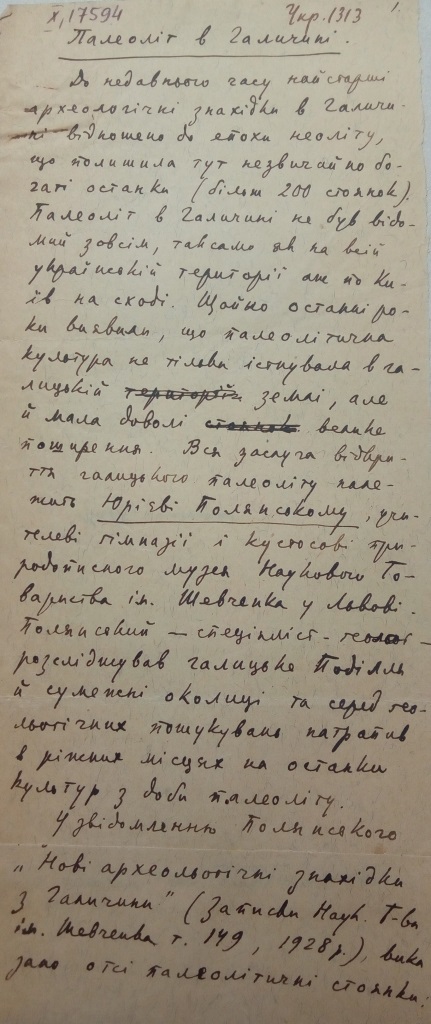 X, 17594
Укр. 1313
1.
Палеоліт в Галичині.
До недавнього часу найстарші
археологічні знахідки в Галичи-
ні відношено до епохи неоліту,
що полишила тут незвичайно бо-
гаті останки (більш 200 стоянок).
Палеоліт в Галичині не був відо-
мий зовсім, так само як на всій
українській території аж по Ки-
їв на сході. Щойно останні ро-
ки виявили, що палеолітична
культура не тільки істнувала в га-
лицькій території землі, але
й мала доволі стоянок велике
поширення. Вся заслуга відкри-
ття галицького палеоліту нале-
жить Юрієві Полянському, учи-
телеві гімназії і кустосові при-
родописного музея Наукового То-
вариства ім. Шевченка у Львові.
Полянський — спеціяліст-геольог —
розсліджував галицьке Поділля
й сумежні околиці та серед гео-
льогічних пошукувань натрапив
в ріжних місцях на останки
культур з доби палеоліту.
У звідомленню Полянського
„Нові археольогічні знахідки
з Галичини" (Записки Наук. Т-ва
ім. Шевченка т. 149, 1928 р.), вика
зано отсі палеолітичні стоянки: